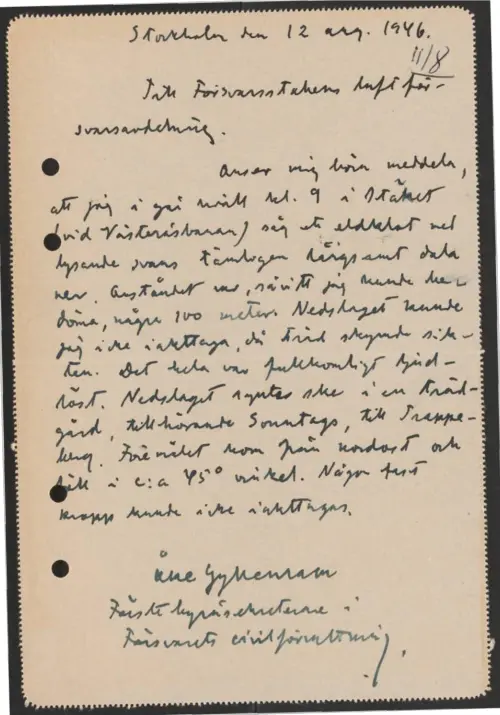 Stockholm den 12 aug. 1946.
11/8
Till Försvarsstabens luftför-
svarsavdelning.
Anser mig böra meddela,
att jag i går kväll kl. 9 i Stäket
(vid Västeråsbanan) såg ett eldklot med
lysande svans tämligen långsamt dala
ner. Avståndet var, såvitt jag kunde be-
döma, några 100 meter. Nedslaget kunde
jag icke iakttaga, då träd skymde sik-
ten. Det hela var fullkomligt ljud-
löst. Nedslaget syntes ske i en träd-
gård, tillhörande Sonntags, till
Föremålet kom från nordost och
föll i c:a 45° vinkel. Någon fast
kropp kunde icke iakttagas.
Åke Gyllenram
Förste byråsekreterare i
Försvarets civilförvaltning.